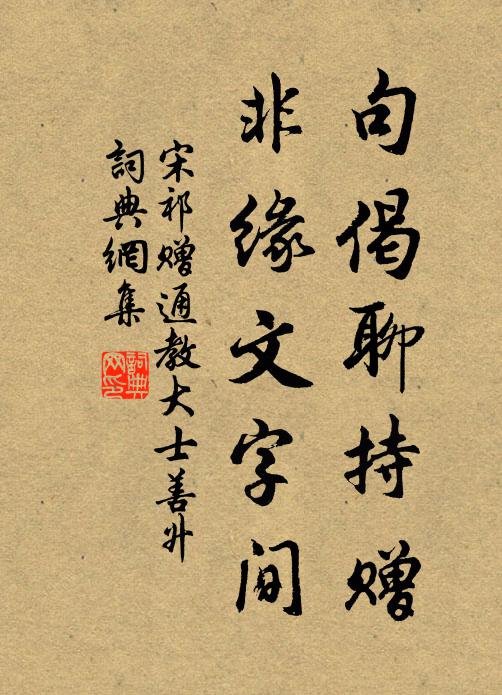 句偈聊持赠
非缘文字间
宋祁赠通教大士善升
詞典網集
詞典网印